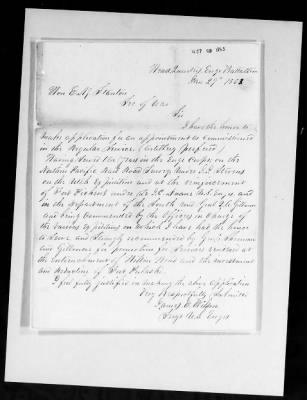 Head Quarters Engr Battalion
Nov 29th 1862
Hon E. M. Stanton
Sec of War
Sir
I have the honor to
make application for an appointment to Commissioned
in the Regular Service, (Artillery Preferred)
Having served the years in the Engr Corps on the
Northern Pacific Rail Road Survey under I. I. Stevens
on the Utah Expedition and at the reinforcement
of Fort Pickens under Lt Engrs and
in the department of the South under Genl Q. A. Gillmore
and being commended by the Officers in charge of
the various Expeditions on which I have had the honor
to serve and strongly recommended by Genls
and Gillmore for promotion for services rendered at
the entrenchment of Hilton Head and the investment
and reduction of Fort Pulaski.
I feel fully justified in making the above application
Very Respectfully Submitted
James E. Wilson
Sergt U.S. Engrs